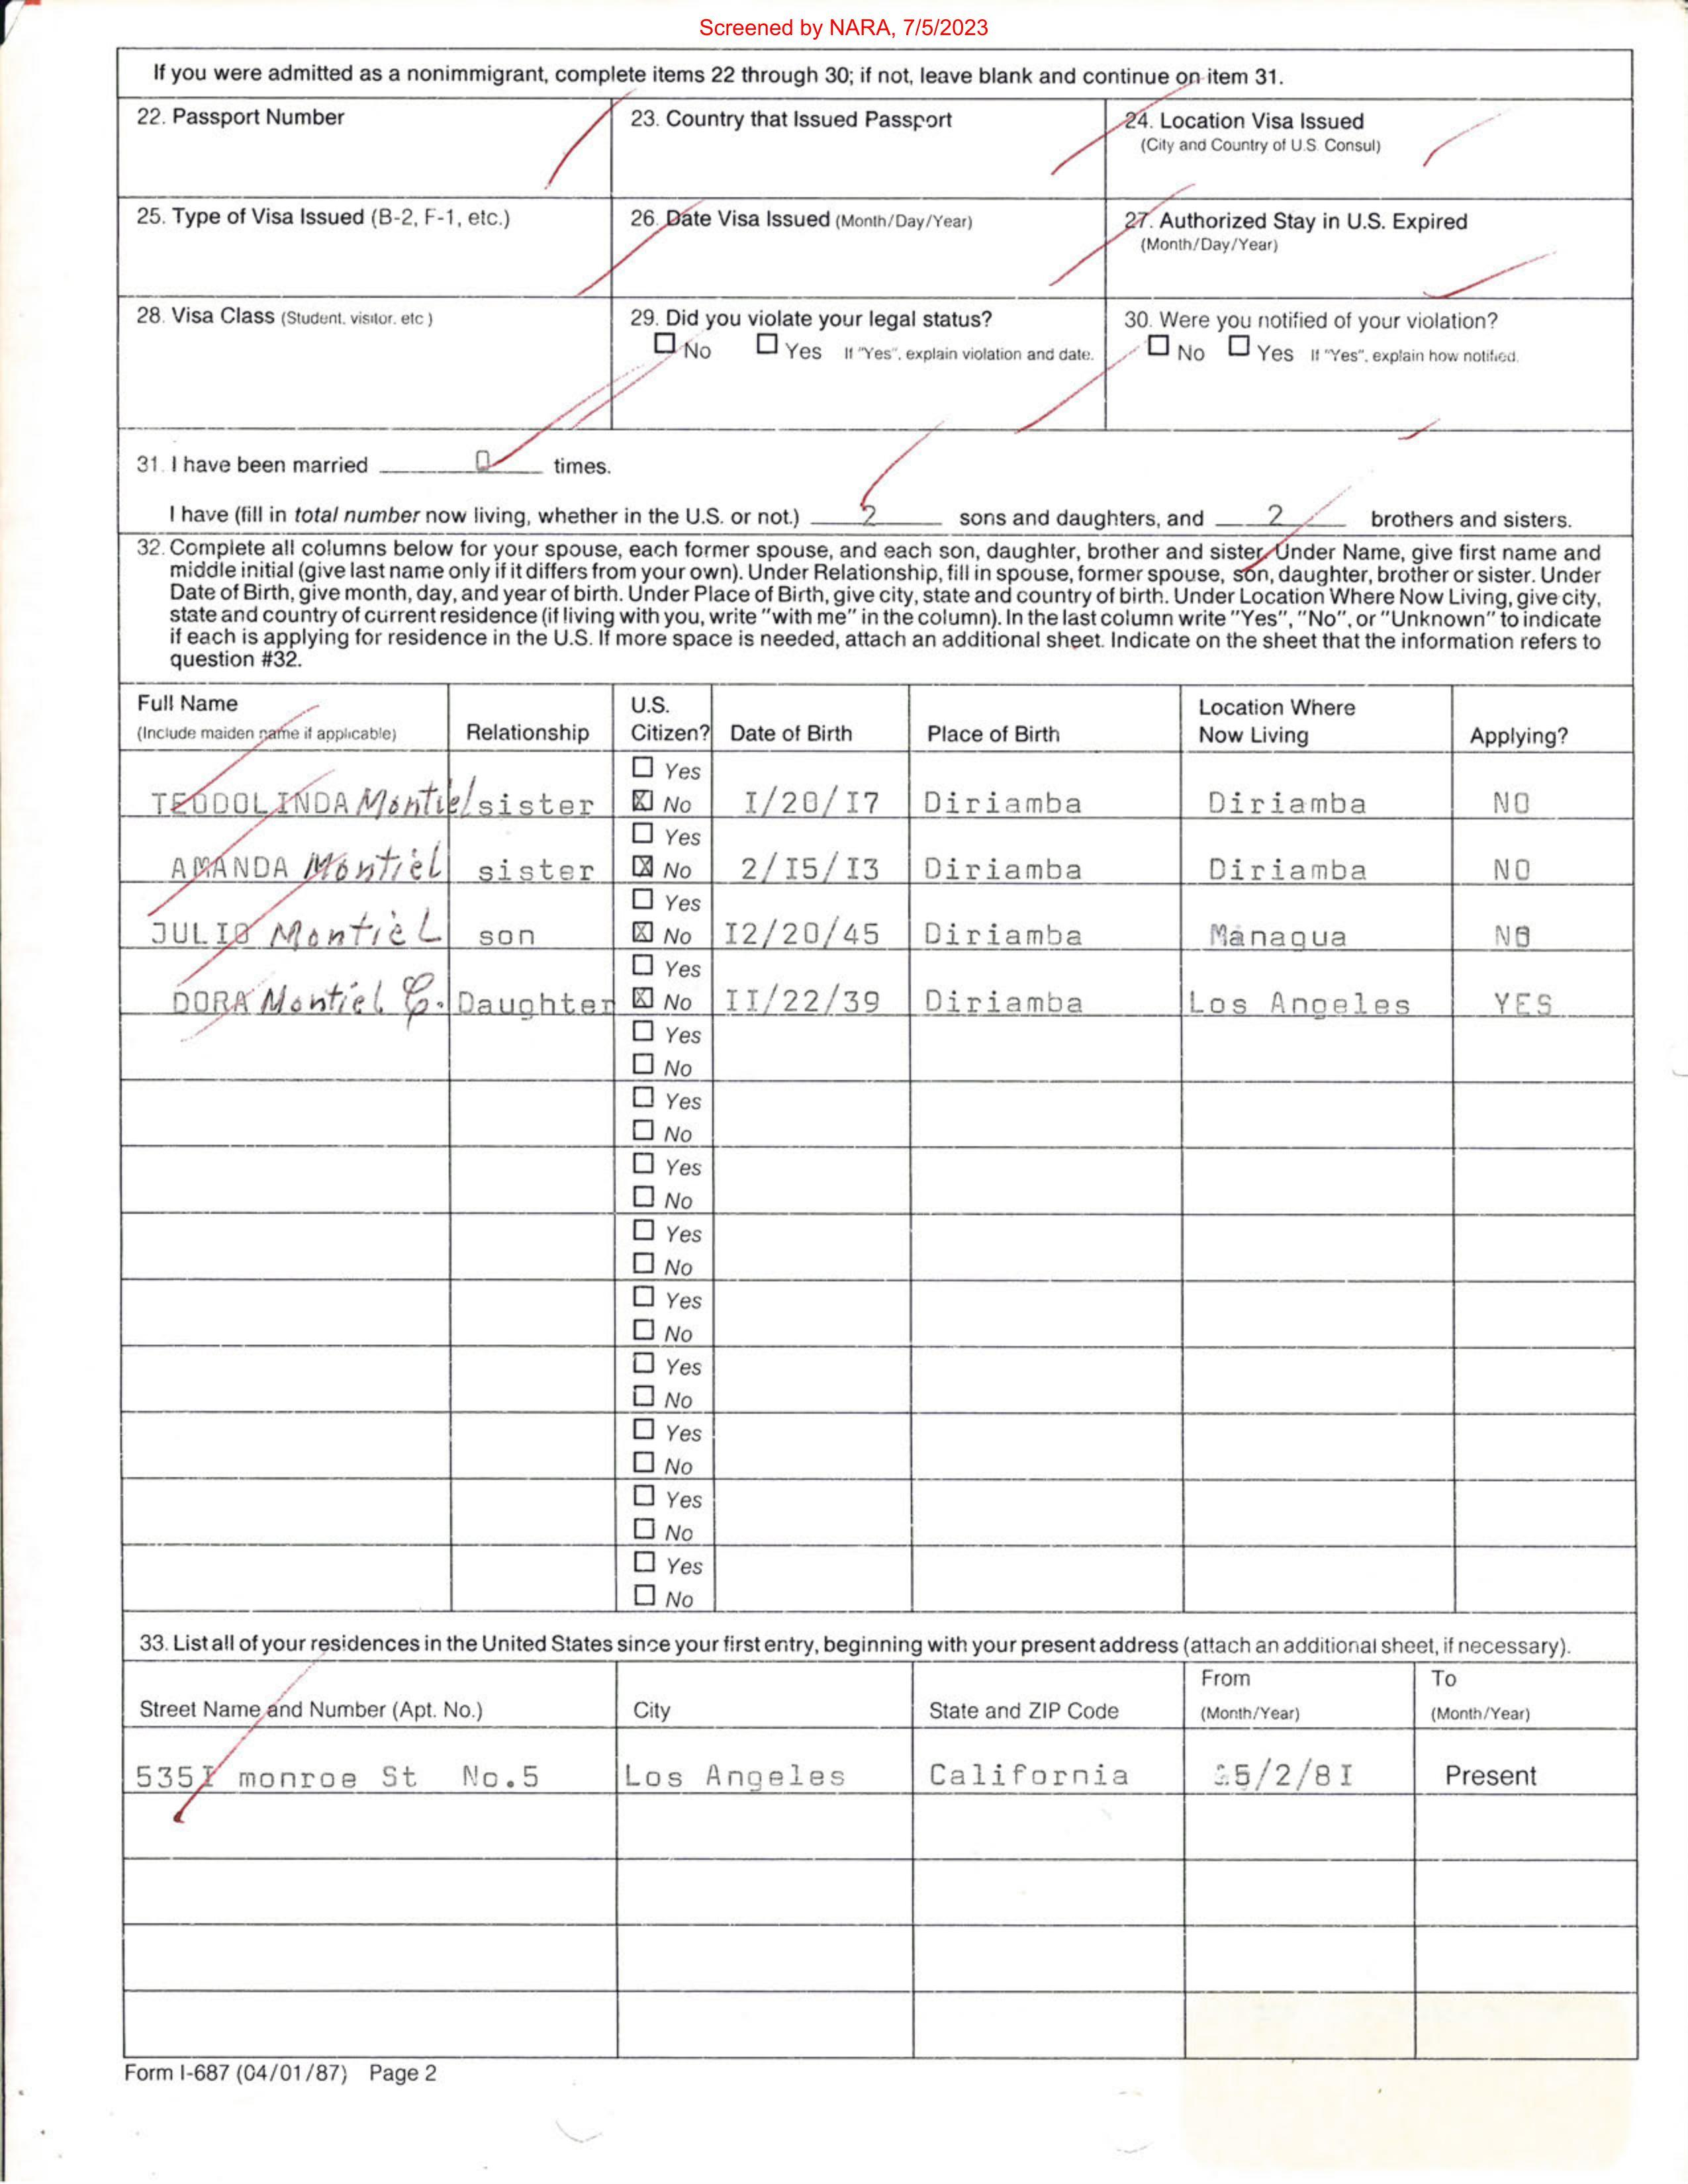 Screened by NARA, 7/5/2023
If you were admitted as a nonimmigrant, complete items 22 through 30; if not, leave blank and continue on item 31.
22. Passport Number
23. Country that Issued Passport
24. Location Visa Issued
(City and Country of U.S. Consul)
25. Type of Visa Issued (B-2, F-1, etc.)
26. Date Visa Issued (Month/Day/Year)
27. Authorized Stay in U.S. Expired
(Month/Day/Year)
28. Visa Class (Student, visitor, etc.)
29. Did you violate your legal status?
☐ No ☐ Yes If "Yes", explain violation and date.
30. Were you notified of your violation?
☐ No ☐ Yes If "Yes", explain how notified.
31. I have been married 0 times.
I have (fill in total number now living, whether in the U.S. or not.) 2 sons and daughters, and 2 brothers and sisters.
32. Complete all columns below for your spouse, each former spouse, and each son, daughter, brother and sister. Under Name, give first name and
middle initial (give last name only if it differs from your own). Under Relationship, fill in spouse, former spouse, son, daughter, brother or sister. Under
Date of Birth, give month, day, and year of birth. Under Place of Birth, give city, state and country of birth. Under Location Where Now Living, give city,
state and country of current residence (if living with you, write "with me" in the column). In the last column write "Yes", "No", or "Unknown" to indicate
if each is applying for residence in the U.S. If more space is needed, attach an additional sheet. Indicate on the sheet that the information refers to
question #32.
Full Name
(Include maiden name if applicable)
Relationship
U.S.
Citizen?
Date of Birth
Place of Birth
Location Where
Now Living
Applying?
☐ Yes
TEODOLINDA Montiel sister ☒ No I/20/I7 Diriamba Diriamba NO
☐ Yes
AMANDA Montiel sister ☒ No 2/I5/I3 Diriamba Diriamba NO
☐ Yes
JULIO Montiel son ☒ No I2/20/45 Diriamba Managua NO
☐ Yes
DORA Montiel C. Daughter ☒ No II/22/39 Diriamba Los Angeles YES
☐ Yes
☐ No
☐ Yes
☐ No
☐ Yes
☐ No
☐ Yes
☐ No
☐ Yes
☐ No
☐ Yes
☐ No
☐ Yes
☐ No
☐ Yes
☐ No
☐ Yes
☐ No
33. List all of your residences in the United States since your first entry, beginning with your present address (attach an additional sheet, if necessary).
Street Name and Number (Apt. No.)
City
State and ZIP Code
From
(Month/Year)
To
(Month/Year)
535I monroe St No.5 Los Angeles California 5/2/8I Present
Form I-687 (04/01/87) Page 2